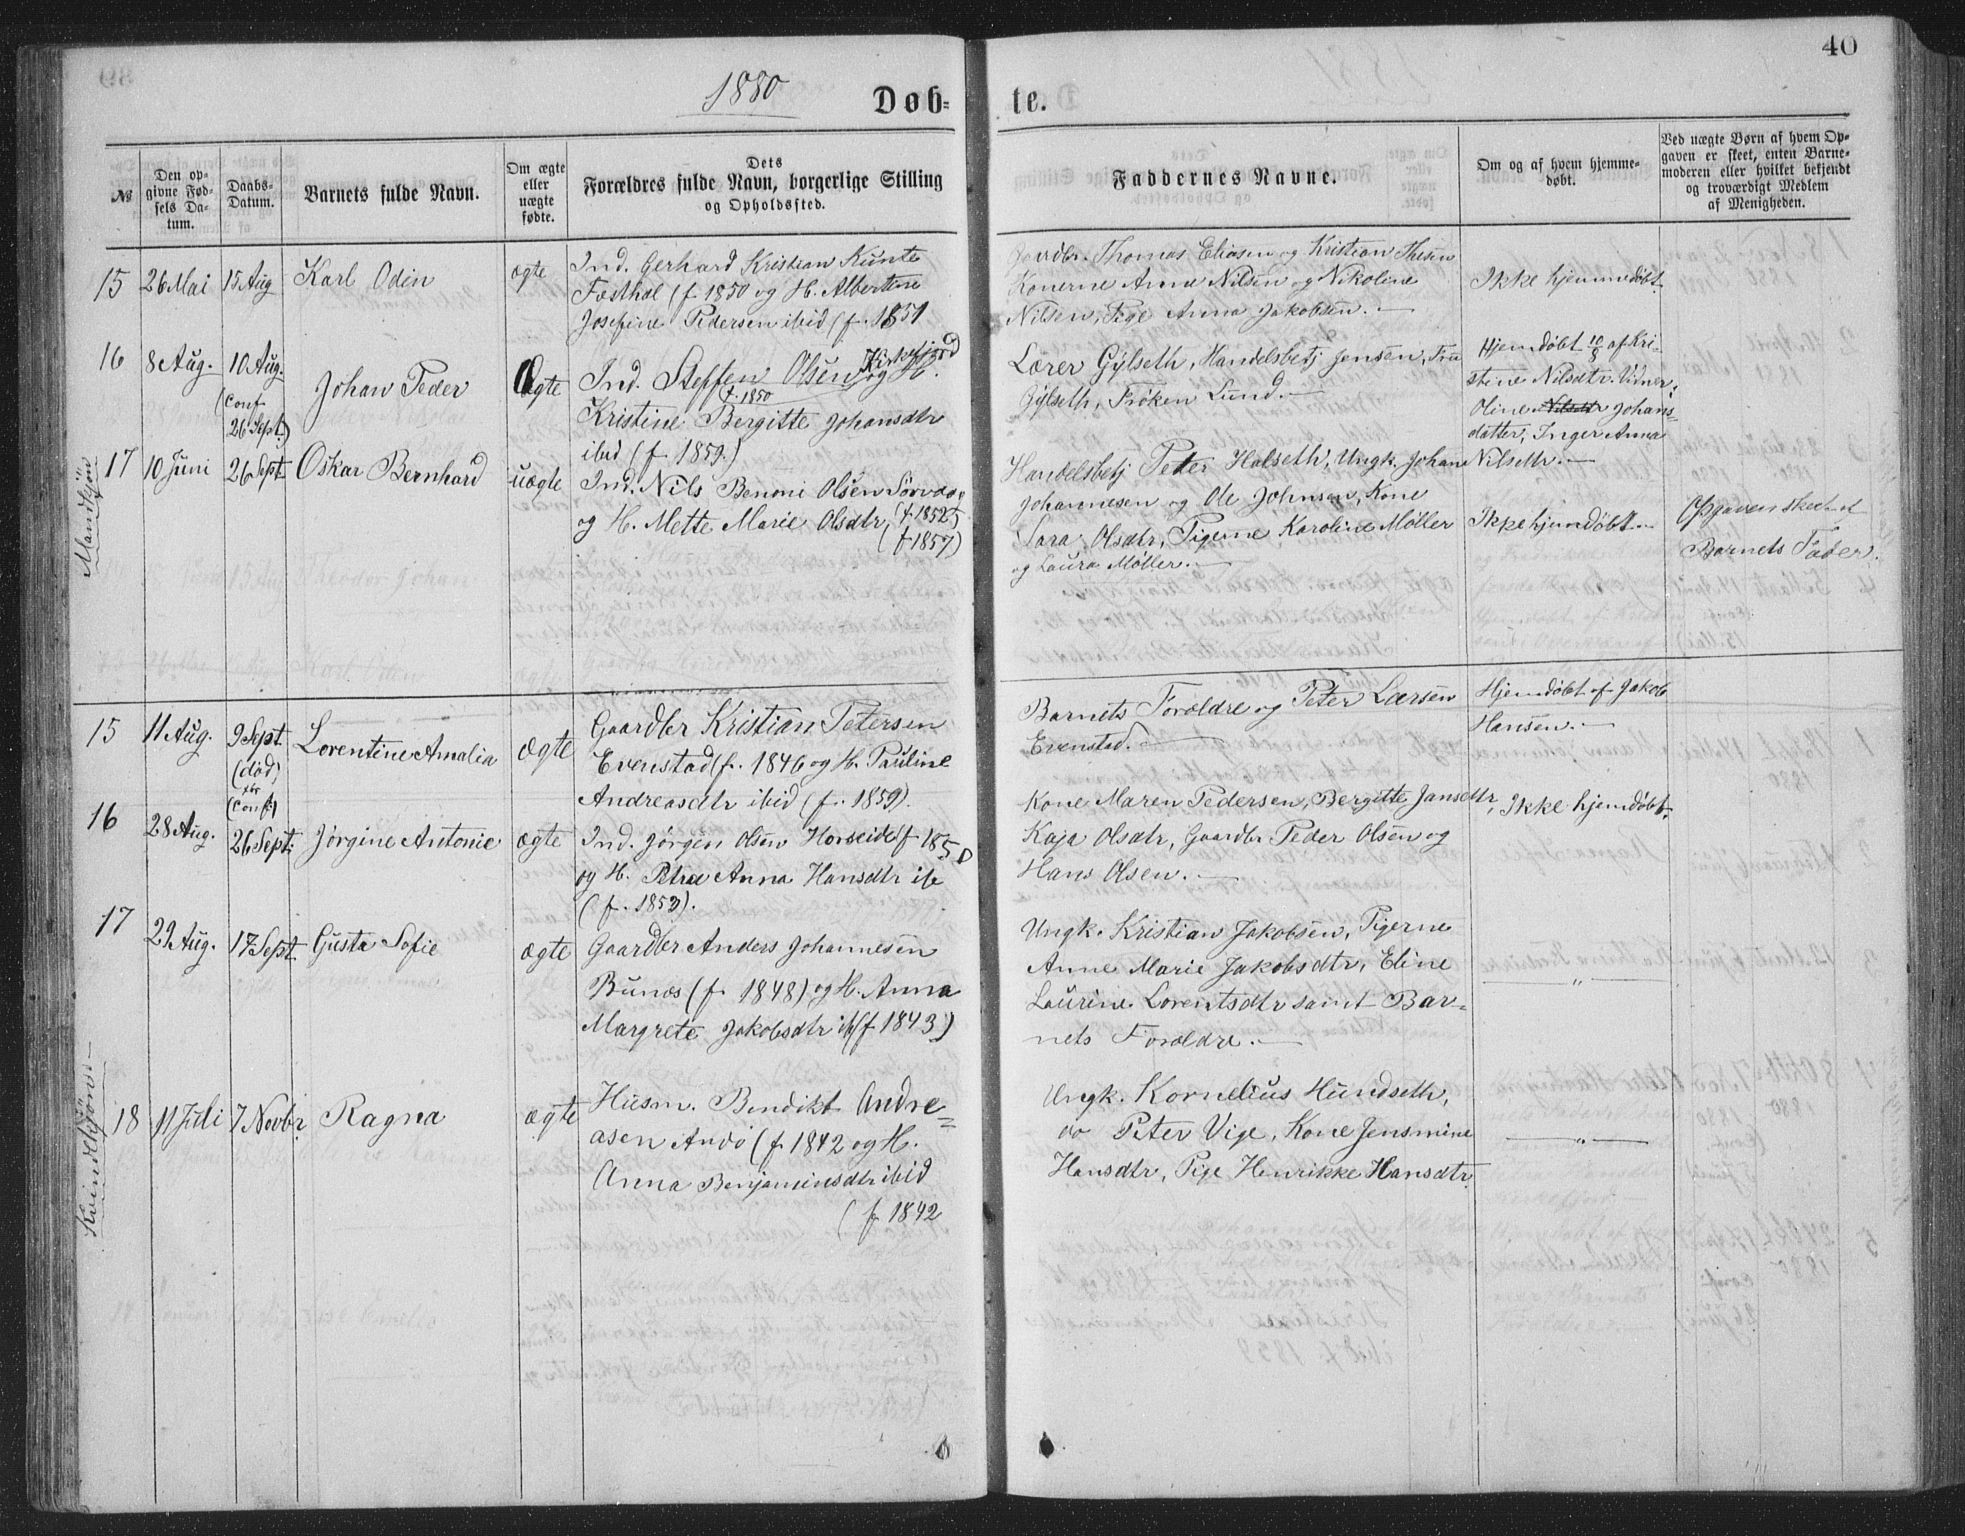 1880
40
Døb-
te.
№
Den op-
givne Fød-
sels Da-
tum.
Daabs-
Datum.
Barnets fulde Navn.
Om ægte
eller
uægte
fødte.
Dets
Forældres fulde Navn, borgerlige Stilling
og Opholdssted.
Faddernes Navne.
Om og af hvem hjemme-
døbt.
Ved uægte Børn af hvem Op-
gaven er skeet, enten Barne-
moderen eller hvilket bekjendt
og troværdigt Medlem
af Menigheden.
Mandkjøn
15
26 Mai
15 Aug
Karl Odin
ægte
Ind. Gerhard Kristian Kunts
Fæsthæl (f. 1850 og H. Albertine
Josefine Pedersen ibid (f. 1851
Gaardbr. Thomas Eliasen og Kristian
Konerne Anna Nilsen og Nikoline
Nilsen, Pige Anna Jakobsen.
Ikke hjemmedøbt.
16
8 Aug.
10 Aug.
(conf
26 Sept.)
Johan Peder
Ægte
Ind. Steffen Olsen Kirkefjord og H.
(f. 1850
Kristine Bergitte Johansdtr
ibid (f. 1859.)
Lærer Gylseth, Handelsbetj Jensen, Fru
Gylseth, Frøken Lund.
Hjemdøbt 10/8 af Kri-
stine Nilsdtr. Vidner:
Oline Nilsdtr Johans-
datter, Inger Anna
Nilseth.
17
10 Juni
26 Sept
Oskar Bernhard
uægte
Ind. Nils Benoni Olsen Sørvaag
(f. 1852)
og H. Mette Marie Olsdtr,
(f 1857)
Handelsbetj Peter Halseth, Ungk. Johan
Johannesen og Ole Johnsen, Kone
Sara Olsdtr, Pigerne Karoline Møller
og Laura Møller.
Ikke hjemdøbt
Opgaven skeet af
Barnets Fader.
Kvindekjøn
15
11 Aug.
9 Sept.
(død,
(conf.)
Lorentine Amalia
ægte
Gaardbr Kristian Petersen
Evenstad (f. 1846 og H. Pauline
Andreasdtr ibid (f. 1859).
Barnets Forældre og Peter Larsen
Evenstad.
Hjemdøbt af Jakob
Hansen.
16
28 Aug.
26 Sept:
Jørgine Antonie
ægte
Ind. Jørgen Olsen Horseide (f 1850
og H. Petra Anna Hansdtr ib
(f. 1853).
Kone Maren Pedersen, Bergitte Jansdtr,
Kaja Olsdtr, Gaardbr Peder Olsen og
Hans Olsen.
Ikke hjemdøbt.
17
29 Aug.
17 Sept
Gusta Sofie
ægte
Gaardbr Anders Johannesen
Bunæs (f. 1848) og H. Anna
Margrete Jakobsdtr ib (f 1843)
Ungk. Kristian Jakobsen, Pigerne
Anne Marie Jakobsdtr, Eline
Laurine Lorentsdtr samt Bar-
nets Forældre.
"
18
11 Juli
7 Novbr
Ragna
ægte
Husm. Bendikt Andre-
asen Andø (f 1842 og H.
Anna Benjaminsdtr ibid
(f 1842
Ungk. Kornelius Hundseth,
do Peter Vige, Kone Jensmine
Hansdtr, Pige Henrikke Hansdtr.
"